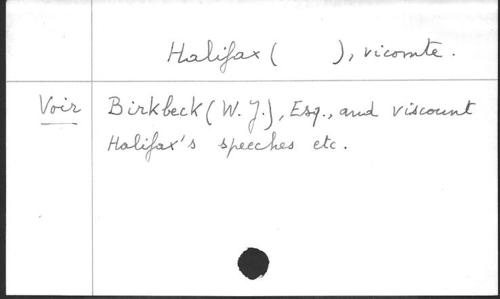 Halifax ( ), vicomte.
Voir Birkbeck (W. J.), Esq., and viscount
Halifax's speeches etc.